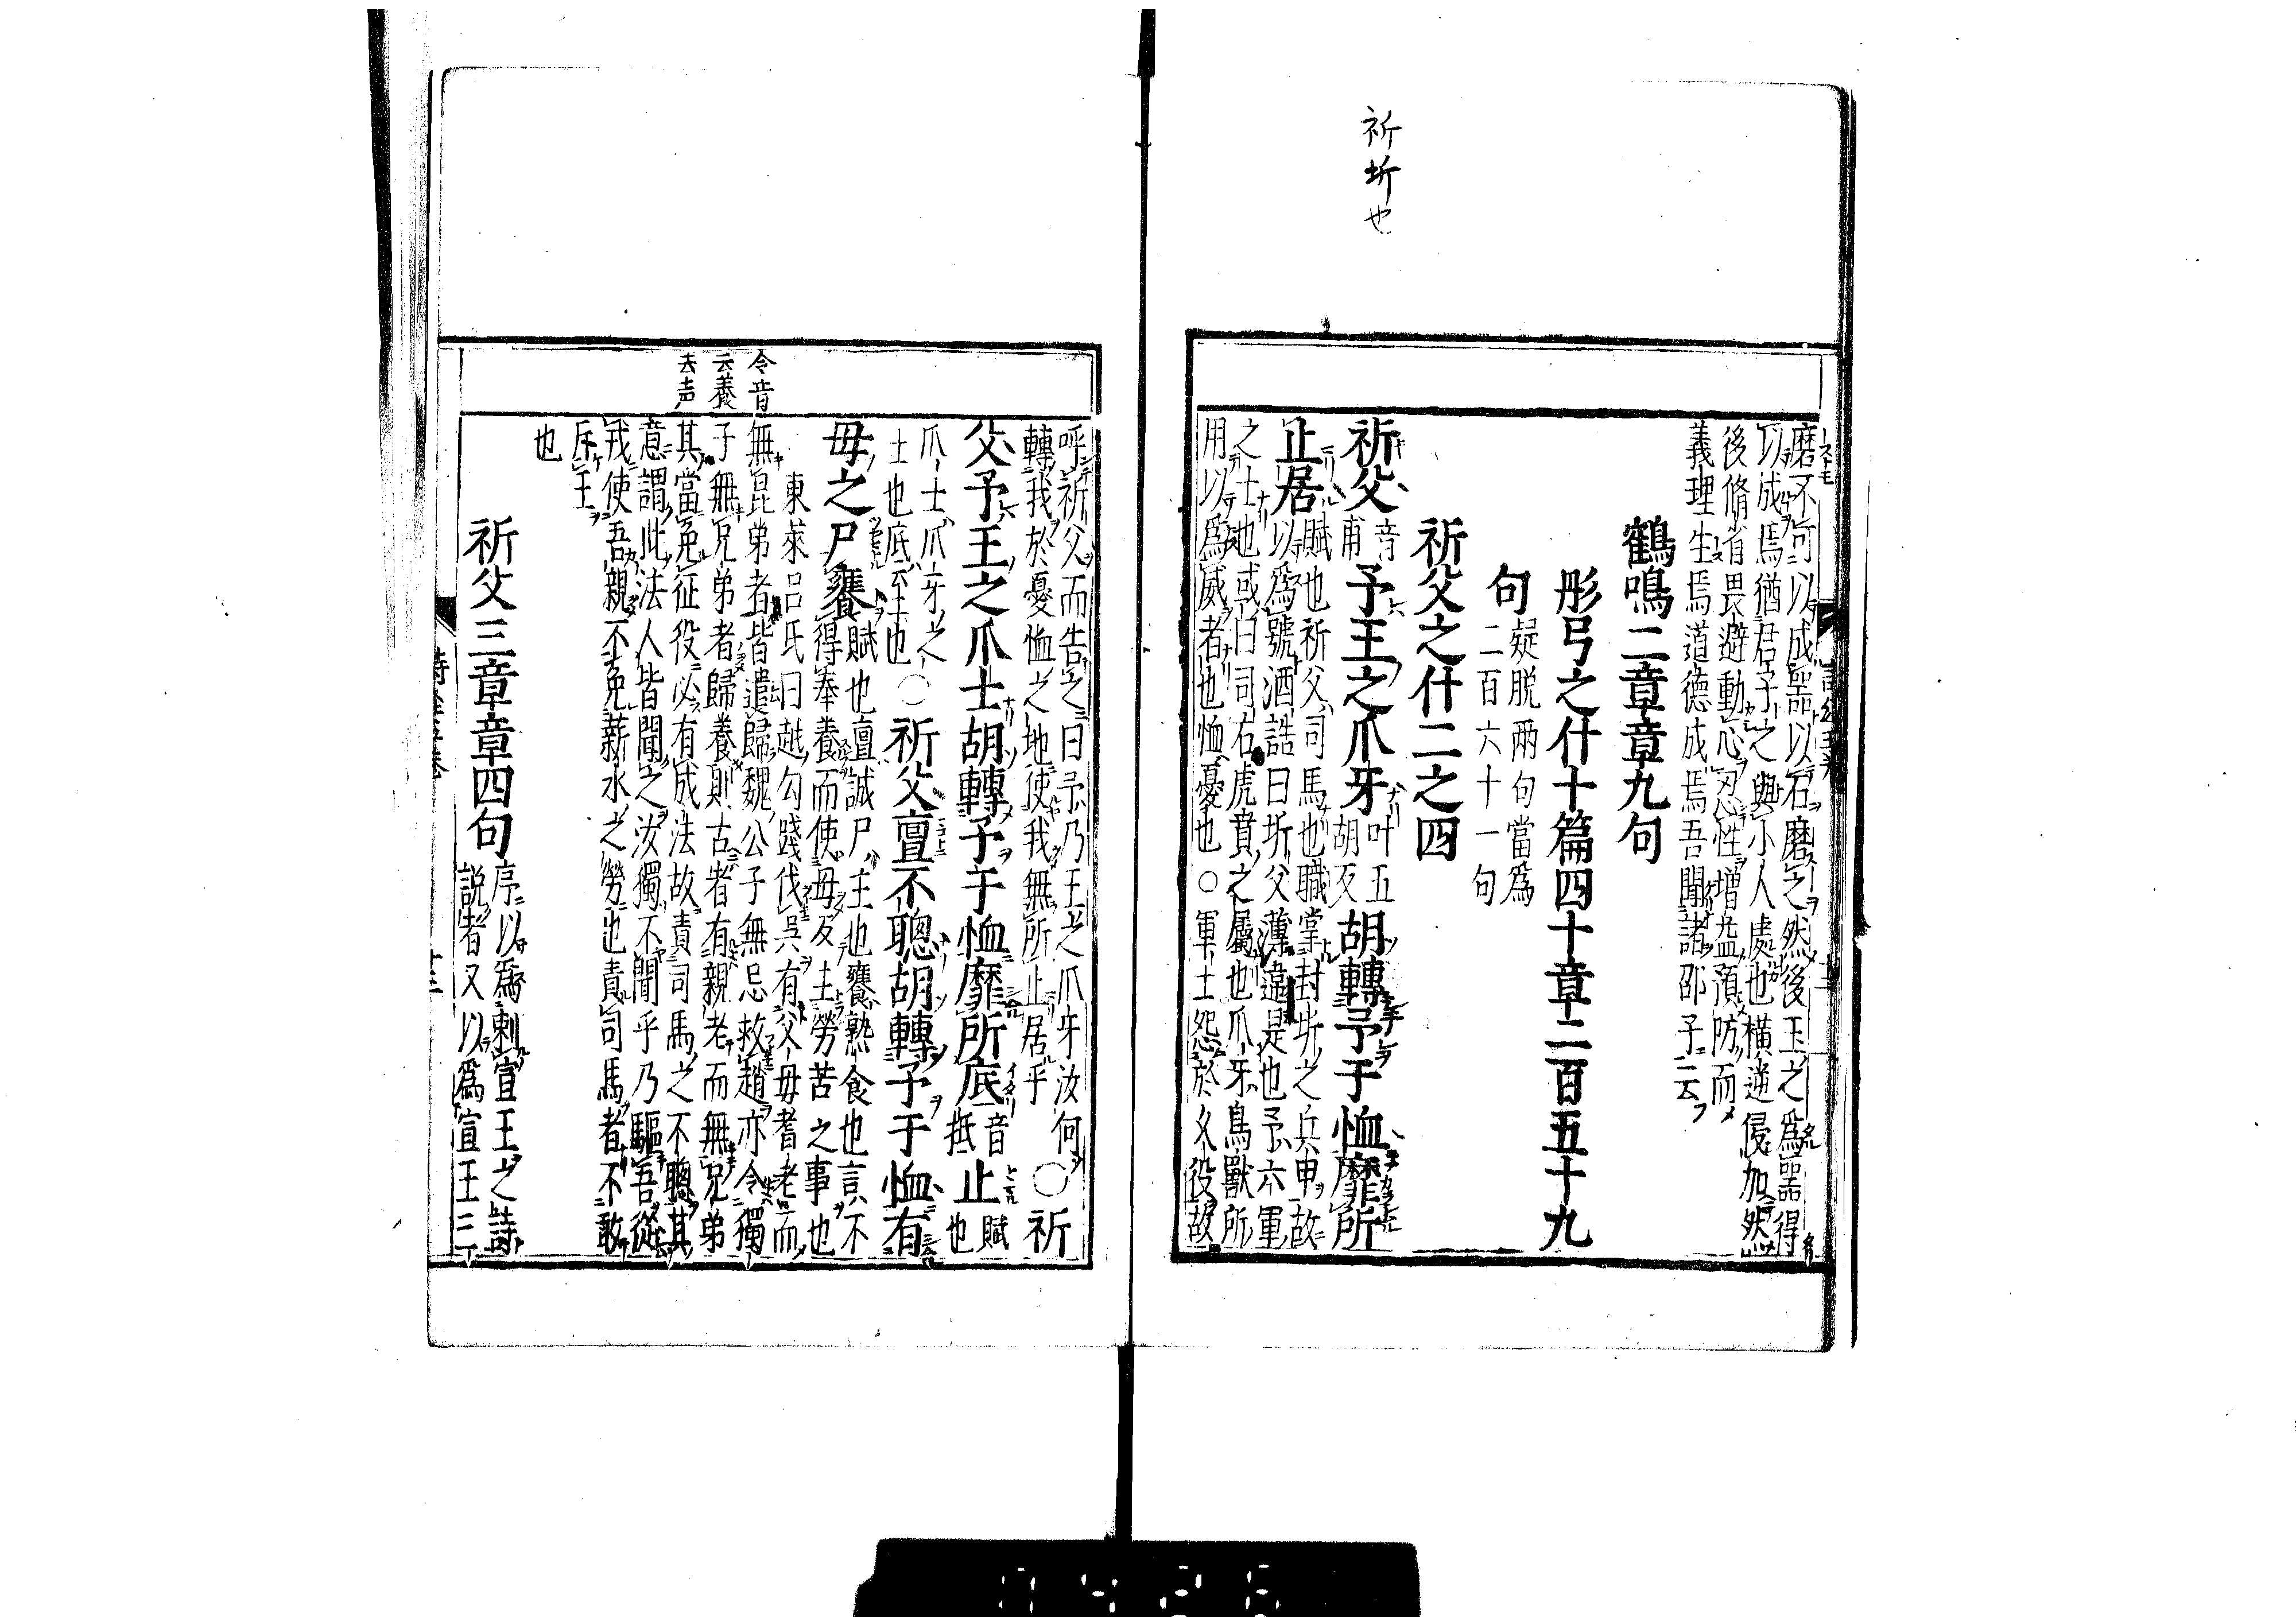 祈圻也
磨不可以成器以石磨之然後玉之爲器得
以成焉猶君子之與小人處也橫逆侵加然
後脩省畏避動心忍性增益預防而
義理生焉道德成焉吾聞諸邵子云
鶴鳴二章章九句
彤弓之什十篇四十章二百五十九
句疑脱兩句當爲
二百六十一句
祈父之什二之四
祈父音甫予王之爪牙叶五胡反胡轉予于恤靡所
止居賦也祈父司馬也職掌封圻之兵甲故
以爲號酒誥曰圻父薄違是也予六軍
之士也或曰司右虎賁之屬也爪牙鳥獸所
用以爲威者也恤憂也○軍士怨於久役故
呼祈父而告之曰予乃王之爪牙汝何
轉我於憂恤之地使我無所止居乎
○祈
父予王之爪士胡轉予于恤靡所底音抵止賦也
爪士爪牙之
士也底至也
○祈父亶不聰胡轉予于恤有
母之尸饔賦也亶誠尸主也饔熟食也言不
得奉養而使母反主勞苦之事也
東萊呂氏曰越勾踐伐吳有父母耆老而
無昆弟者皆遣歸魏公子無忌救趙亦令獨
子無兄弟者歸養則古者有親老而無兄弟
其當免征役必有成法故責司馬之不聰其
意謂此法人皆聞之汝獨不聞乎乃驅吾從
戎使吾親不免薪水之勞也責司馬者不敢
斥王
也
祈父三章章四句序以爲刺宣王之詩
說者又以爲宣王三
令音
云養
去声